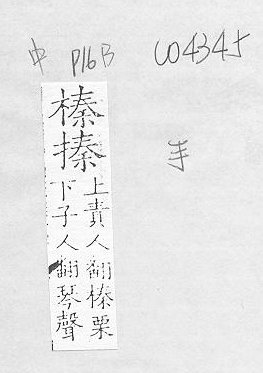 中 P16B C04345
手
榛搸
上責人翻榛栗
下子人翻琴聲